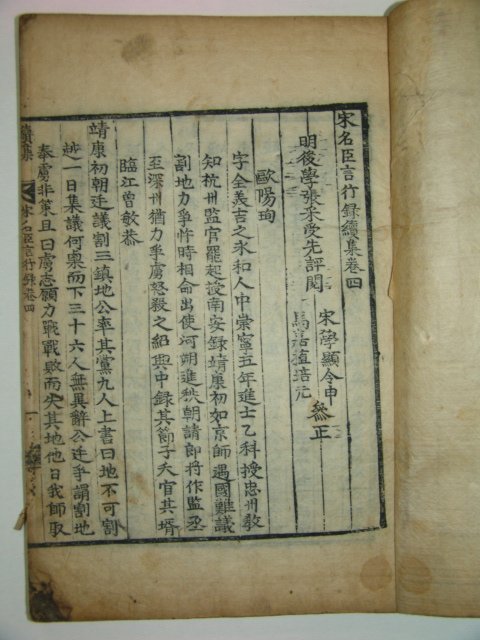 宋名臣言行錄續集卷四
明後學張采受先評閱
宋學顯令申
馬嘉植培元
叅正
歐陽珣
字全美吉之永和人中崇寧五年進士乙科授忠州敎
知杭州監官罷起授南安錄靖康初如京師遇國難議
割地力爭忤時相命出使河朔進秩朝請郎將作監丞
至深州猶力爭虜怒殺之紹興中錄其節子夭官其壻
臨江曾敏恭
靖康初朝廷議割三鎮地公率其黨九人上書曰地不可割
越一日集議何㮚而下三十六人無異辭公廷爭謂割地
奉虜非策且曰虜志願力戰戰敗而失其地他日我師取
續集
宋名臣言行錄卷四